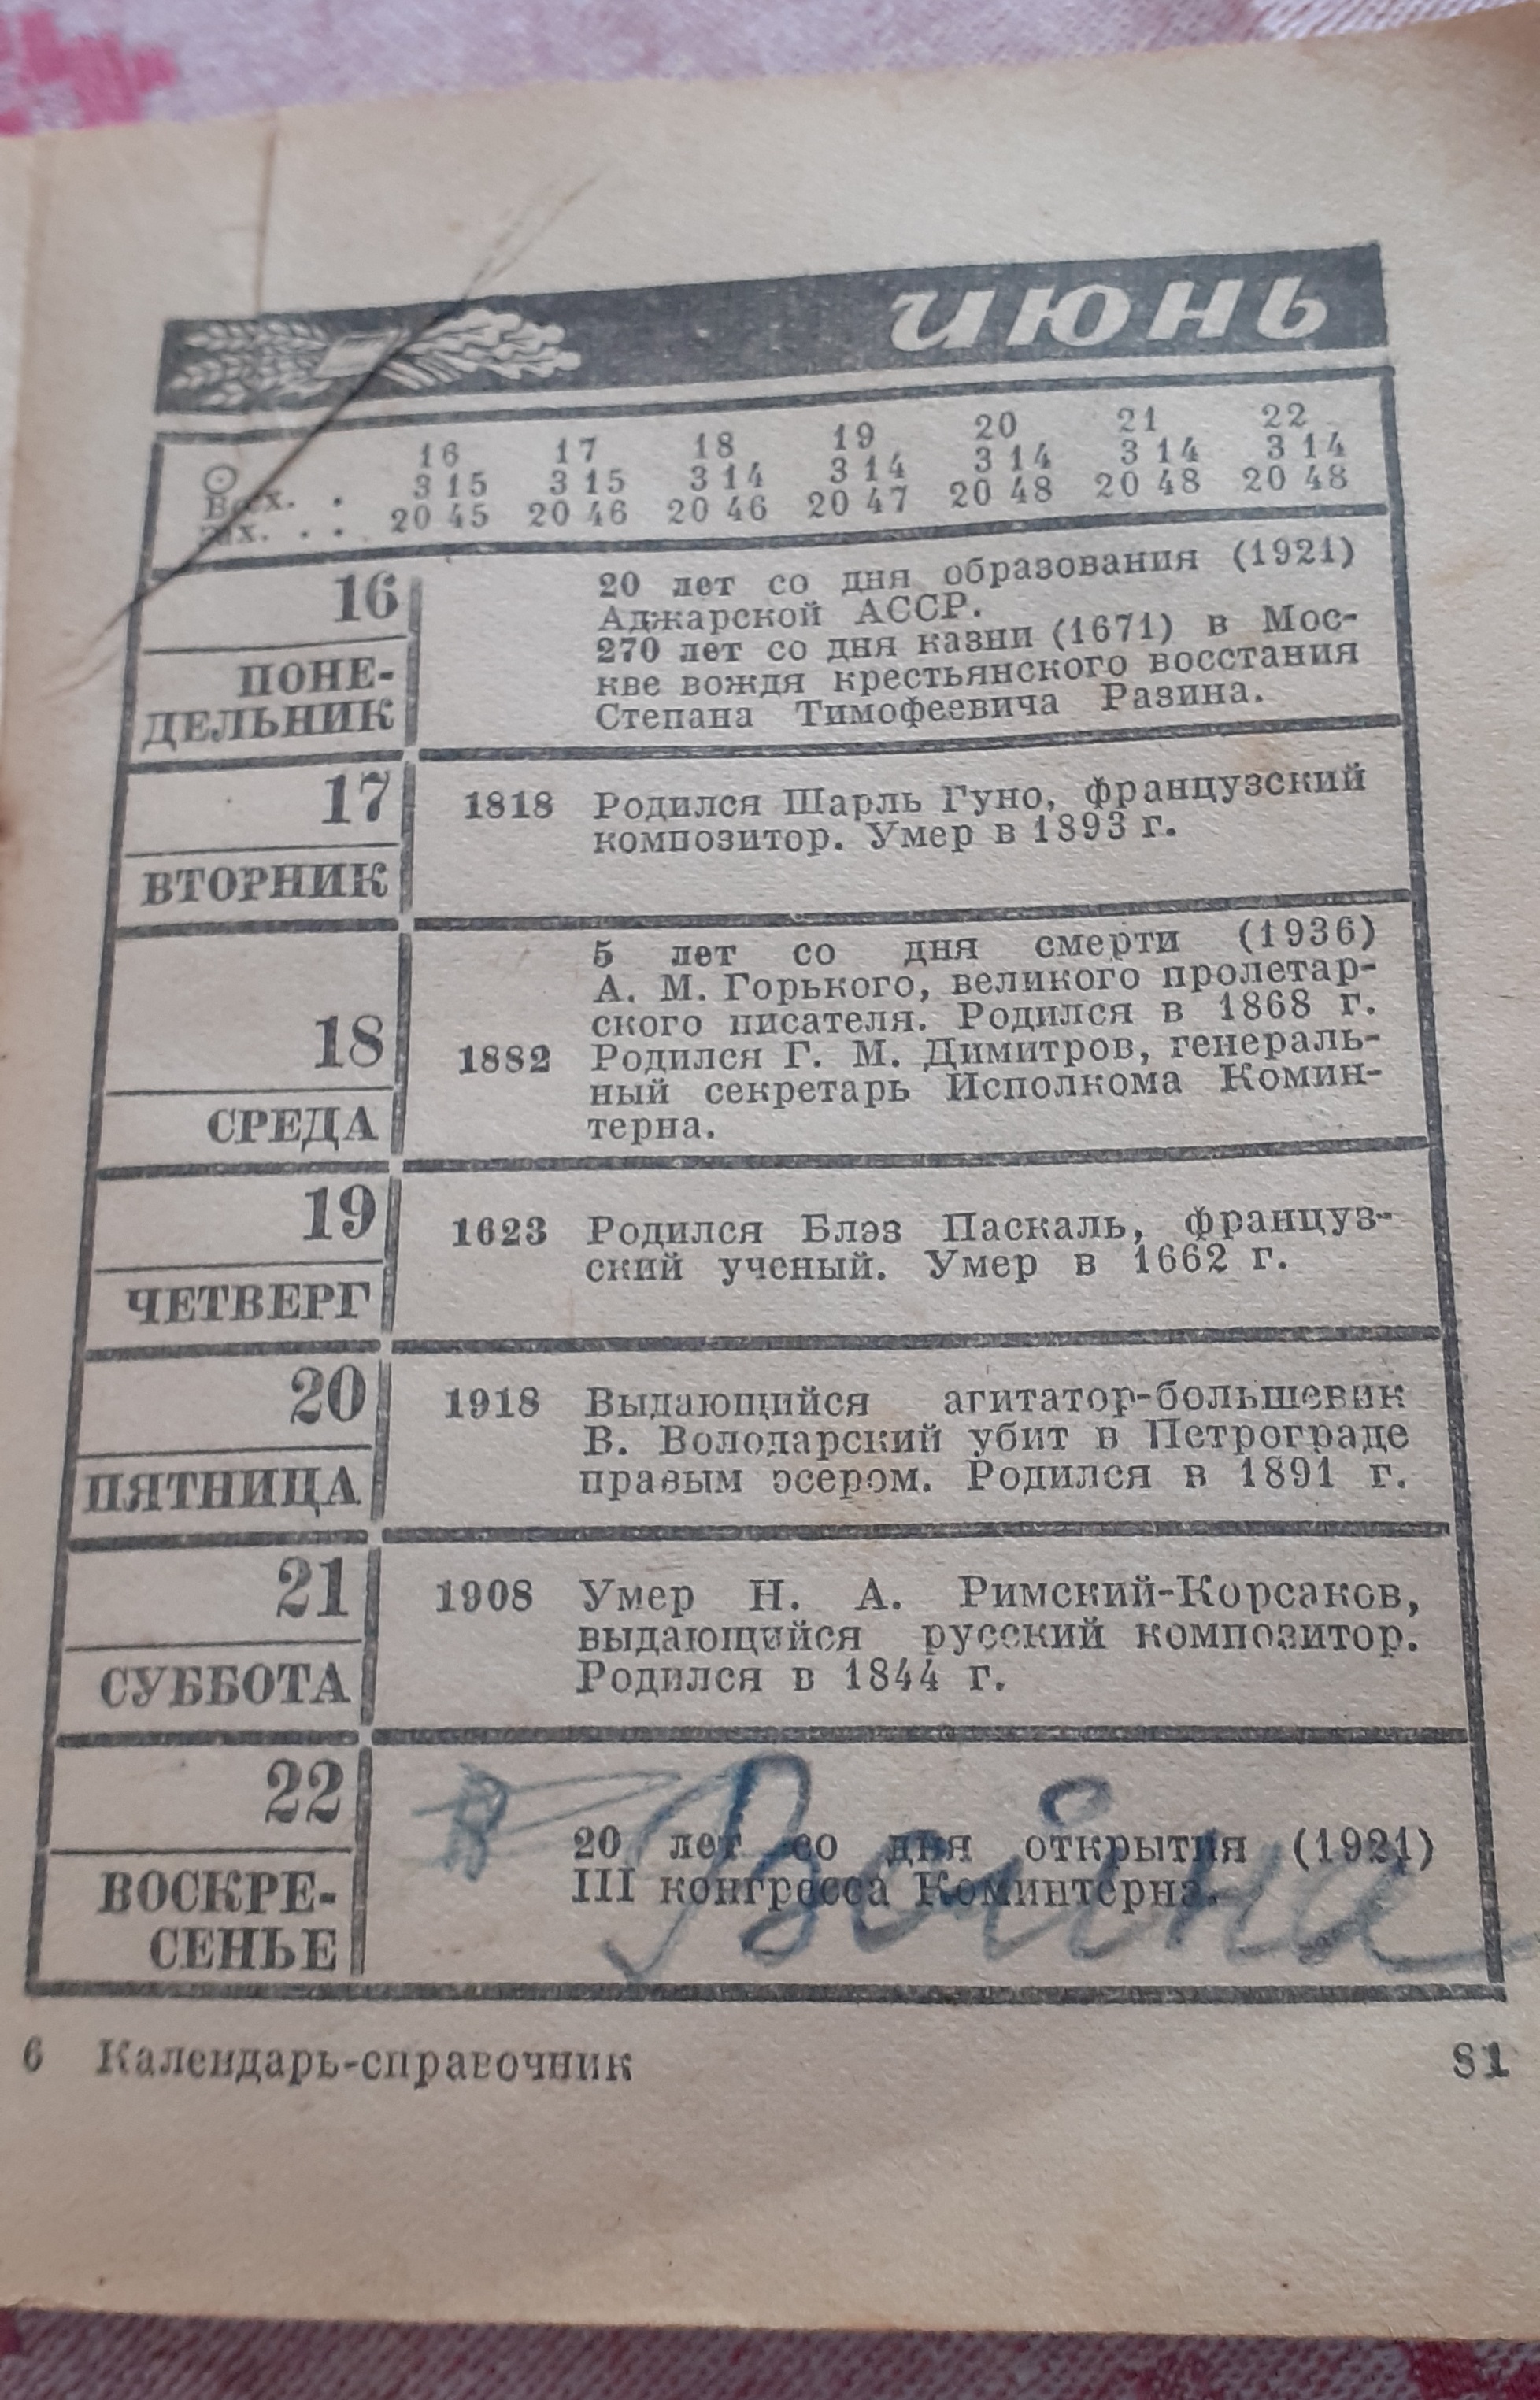 июнь
16 17 18 19 20 21 22
Восх. . 3 15 3 15 3 14 3 14 3 14 3 14 3 14
Зах. . . 20 45 20 46 20 46 20 47 20 48 20 48 20 48
16
ПОНЕ-
ДЕЛЬНИК
20 лет со дня образования (1921)
Аджарской АССР.
270 лет со дня казни (1671) в Мос-
кве вождя крестьянского восстания
Степана Тимофеевича Разина.
17
ВТОРНИК
1818 Родился Шарль Гуно, французский
композитор. Умер в 1893 г.
18
СРЕДА
5 лет со дня смерти (1936)
А. М. Горького, великого пролетар-
ского писателя. Родился в 1868 г.
1882 Родился Г. М. Димитров, генераль-
ный секретарь Исполкома Комин-
терна.
19
ЧЕТВЕРГ
1623 Родился Блэз Паскаль, француз-
ский ученый. Умер в 1662 г.
20
ПЯТНИЦА
1918 Выдающийся агитатор-большевик
В. Володарский убит в Петрограде
правым эсером. Родился в 1891 г.
21
СУББОТА
1908 Умер Н. А. Римский-Корсаков,
выдающийся русский композитор.
Родился в 1844 г.
22
ВОСКРЕ-
СЕНЬЕ
В Война
20 лет со дня открытия (1921)
III конгресса Коминтерна.
6 Календарь-справочник 81